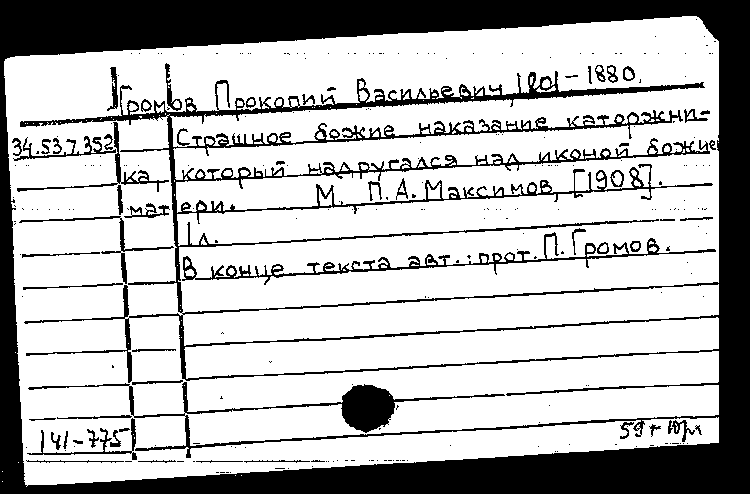 Громов, Прокопий Васильевич, 1801-1880.
34.53.7.352 Страшное божие наказание каторжни-
ка, который надругался над иконой божией
матери. М., П.А. Максимов, [1908].
1 л.
В конце текста авт.: прот. П. Громов.
141-775 59г